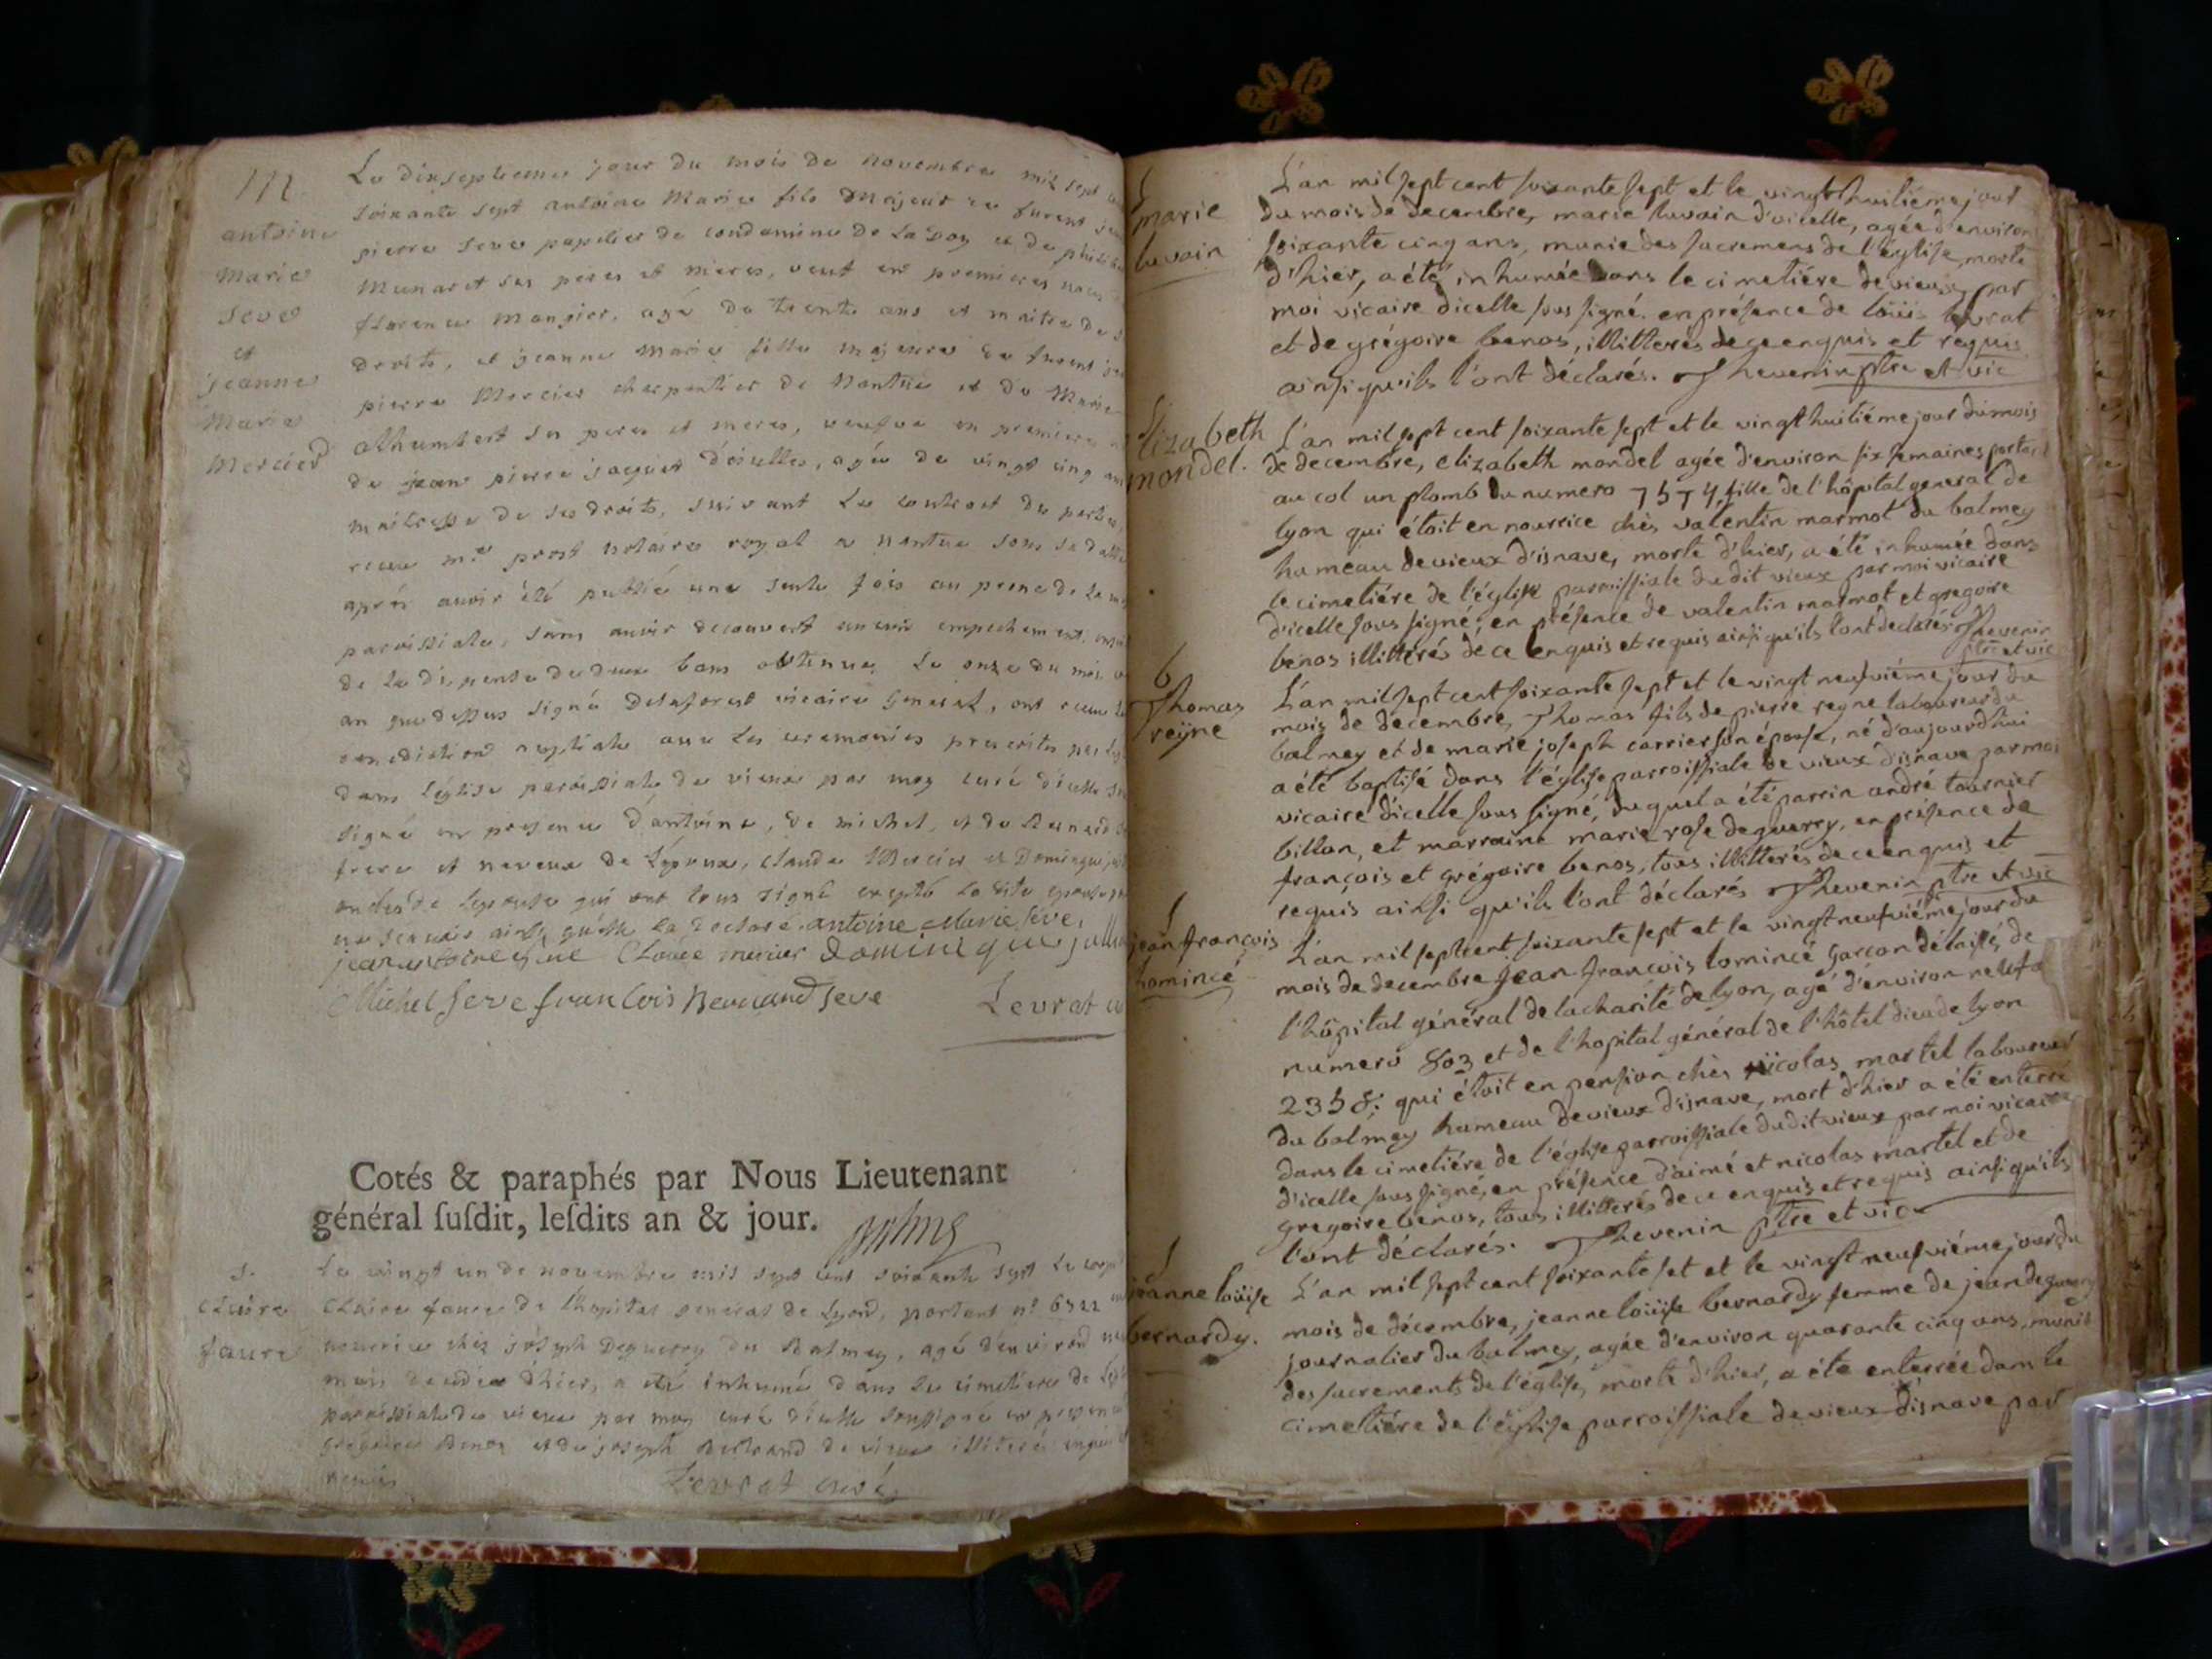 M
antoine
Marie
Seve
et
jeanne
Marie
Mercier
Le dixseptieme jour du mois de novembre mil sept
soixante sept antoine Marie fils Majeur de furent
pierre Seve papetier de condamine de La Doy et de
Munaret ses peres et meres, veuf en premieres
florence mangier, agé de trente ans et maitre de
droits, et jeanne Marie fille majeure de furent
pierre Mercier charpentier de Nantua et de Marie
allhumbert ses peres et meres, veufve en premiere
de jean pierre jaquet d'eiselles, agée de vingt cinq ans
maitresse de ses droits, suivant Le contract de
receu me prost notaire royal a nantua sous sa datte
aprés avoir été publié une seule fois au prone de La
paroissiale, sans avoir decouvert aucun empechement,
de La dispense de deux bans obtenue Le onze du mois
an que dessus signé Delaforest vicaire General, ont receu
benediction nuptiale avec Les ceremonies prescrites par
dans L'église paroissiale de vieux par moy curé d'icelle
signé en presence d'antoine, de michel, et de Bernard
frere et neveux de L'epoux, claude Mercier et Dominique
oncles de L'epouse qui ont tous signé excepté La dite epouse
ne scavoir ainsy qu'elle La declaré. antoine Marie seve,
Claude mercier dominique
Michel Seve francois Bernard Seve Levrat
Cotés & paraphés par Nous Lieutenant
général susdit, lesdits an & jour.
S.
Claire
faure
Le vingt un de novembre mil sept cent soixante sept Le corps
Claire faure de L'hopital General de Lyon, portant n° 6722
nourrice chez joseph Deguerry du Balmey, agé d'environ
mois decedée d'hier, a eté inhumé dans Le cimetiere de
paroissiale de vieux par moy curé d'icelle soussigné en presence
gregoire Benoz et de joseph Bertrand de vieux illiteré enquis
requis Levrat curé
S
marie
luvain
L'an mil sept cent soixante sept et le vingt huitiéme jour
du mois de decembre, marie luvain d'vicelle, agée d'environ
soixante cinq ans, munie des sacremens de l'église, morte
d'hier, a été inhumée dans le cimetiére de vieux, par
moi vicaire dicelle sous signé. en présence de loüis levrat
et de grégoire benos, illitterés de ce enquis et requis
ainsi qu'ils l'ont déclarés. Thevenin ptre et vic
Elizabeth
mondel.
L'an mil sept cent soixante sept et le vingt huitiéme jour du mois
de decembre, elizabeth mondel agée d'environ six semaines, portant
au col un plomb du numero 7574, fille de l'hôpital general de
lyon qui étoit en nourrice chès valentin marmot du balmey
hameau de vieux d'isnave, morte d'hier, a été inhumée dans
le cimetiére de l'église paroissiale du dit vieux par moi vicaire
d'icelle sous signé, en présence de valentin marmot et gregoire
benos illitterés de ce enquis et requis ainsi qu'ils l'ont declarés Thevenin
ptre et vic
b
Thomas
reÿne
L'an mil sept cent soixante sept et le vingt neufviéme jour du
mois de decembre, Thomas fils de pierre reyne laboureur du
balmey et de marie joseph carrier son épouse, né d'aujourd'hui
a été baptisé dans l'église parroissiale de vieux d'isnave par moi
vicaire d'icelle sous signé, duquel a été parrin andré tournier
billon, et marraine marie rose deguerry, en présence de
françois et grégoire benos, tous illitterés de ce enquis et
requis ainsi qu'ils l'ont déclarés Thevenin ptre et vic
S
jean françois
lomincé
L'an mil sept cent soixante sept et le vingt neufviéme jour du
mois de decembre jean françois lomincé garcon délaissé, de
l'hôpital général de la charité de lyon, agé d'environ neuf
numero 803 et de l'hopital général de l'hôtel dieu de lyon
2358; qui étoit en pension chès nicolas martel laboureur
du balmey hameau de vieux d'isnave, mort d'hier a été enterré
dans le cimetiére de l'église parroissiale du dit vieux par moi vicaire
d'icelle sous signé, en présence d'aimé et nicolas martel et de
gregoire benos, tous illitterés de ce enquis et requis ainsi qu'ils
l'ont déclarés. Thevenin ptre et vic
S
jeanne loüise
bernardy.
L'an mil sept cent soixante set et le vingt neufviéme jour du
mois de décembre, jeanne loüise bernardy femme de jean deguerry
journalier du balmey, agée d'environ quarante cinq ans, munie
des sacrements de l'église, morte d'hier, a été enterrée dans le
cimetiére de l'église parroissiale de vieux d'isnave par